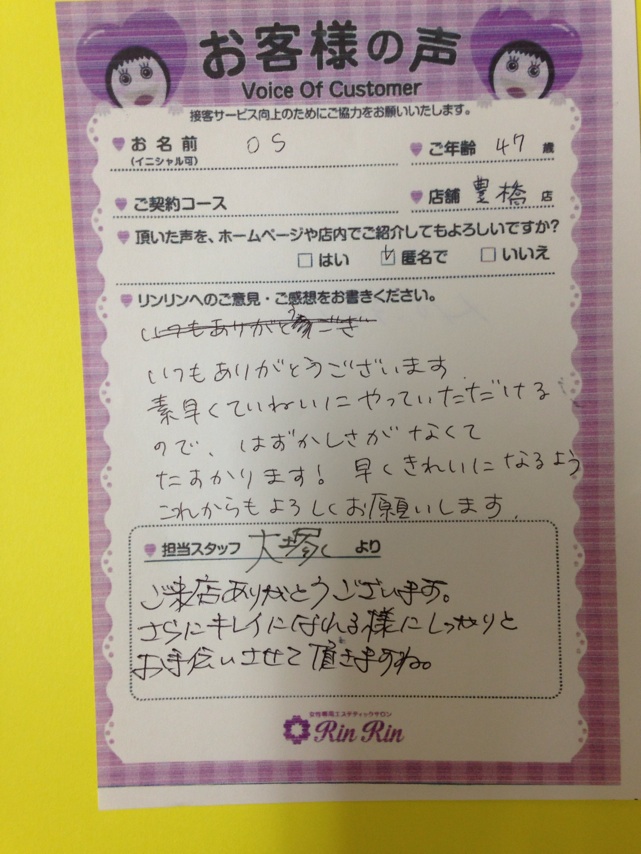 お客様の声
Voice Of Customer
接客サービス向上のためにご協力をお願いいたします。
お名前 OS ご年齢 47 歳
(イニシャル可)
ご契約コース 店舗 豊橋 店
頂いた声を、ホームページや店内でご紹介してもよろしいですか?
□はい ☑匿名で □いいえ
リンリンへのご意見・ご感想をお書きください。
いつもありがとうござ
いつもありがとうございます
素早くていねいにやっていただける
ので、はずかしさがなくて
たすかります! 早くきれいになるよう
これからもよろしくお願いします.
担当スタッフ 大塚 より
ご来店ありがとうございます。
さらにキレイになれる様にしっかりと
お手伝いさせて頂きますね。
女性専用エステティックサロン
Rin Rin